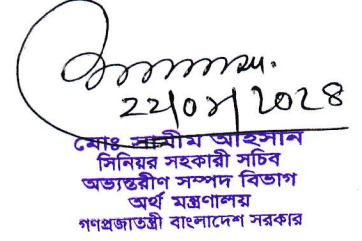 ২২/০৮/২০২৪
মোঃ সামীম আহসান
সিনিয়র সহকারী সচিব
অভ্যন্তরীণ সম্পদ বিভাগ
অর্থ মন্ত্রণালয়
গণপ্রজাতন্ত্রী বাংলাদেশ সরকার